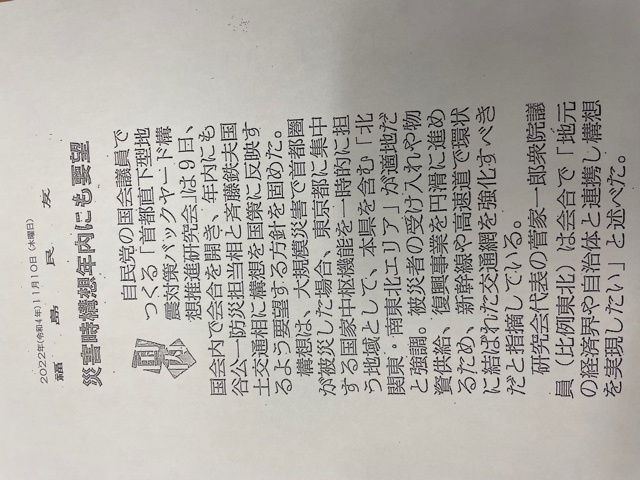 2022年(令和4年)11月10日(木曜日)
福島民友
災害時構想年内にも要望
国会
自民党の国会議員で
つくる「首都直下型地
震対策バックヤード構
想推進研究会」は9日、
国会内で会合を開き、年内にも
谷公一防災担当相と斉藤鉄夫国
土交通相に構想を国策に反映す
るよう要望する方針を固めた。
構想は、大規模災害で首都圏
が被災した場合、東京都に集中
する国家中枢機能を一時的に担
う地域として、本県を含む「北
関東・南東北エリア」が適地だ
と強調。被災者の受け入れや物
資供給、復興事業を円滑に進め
るため、新幹線や高速道で環状
に結ばれた交通網を強化すべき
だと指摘している。
研究会代表の菅家一郎衆院議
員(比例東北)は会合で「地元
の経済界や自治体と連携し構想
を実現したい」と述べた。